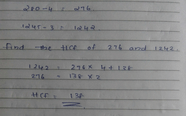 280-4 = 276
1245-3 = 1242
find the HCF of 276 and 1242.
1242 = 276 × 4 + 138
276 = 138 × 2
HCF = 138